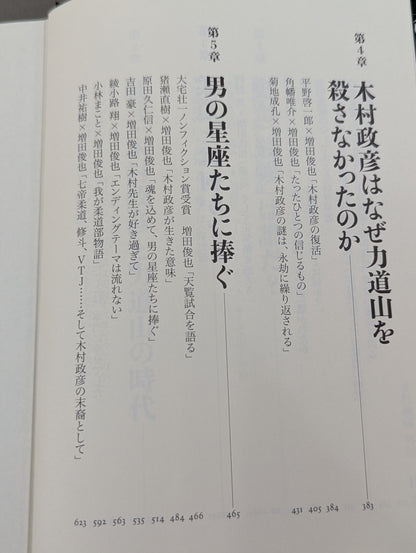 第4章 木村政彦はなぜ力道山を
殺さなかったのか 383
平野啓一郎×増田俊也「木村政彦の復活」 384
角幡唯介×増田俊也「たったひとつの信じるもの」 405
菊地成孔×増田俊也「木村政彦の謎は、永劫に繰り返される」 431
第5章 男の星座たちに捧ぐ 465
大宅壮一ノンフィクション賞受賞 増田俊也「天覧試合を語る」 466
猪瀬直樹×増田俊也「木村政彦が生きた意味」 484
原田久仁信×増田俊也「魂を込めて、男の星座たちに捧ぐ」 514
吉田豪×増田俊也「木村先生が好き過ぎて」 535
綾小路翔×増田俊也「エンディングテーマは流れない」 563
小林まこと×増田俊也「我が柔道部物語」 592
中井祐樹×増田俊也「七帝柔道、修斗、VTJ……そして木村政彦の末裔として」 623